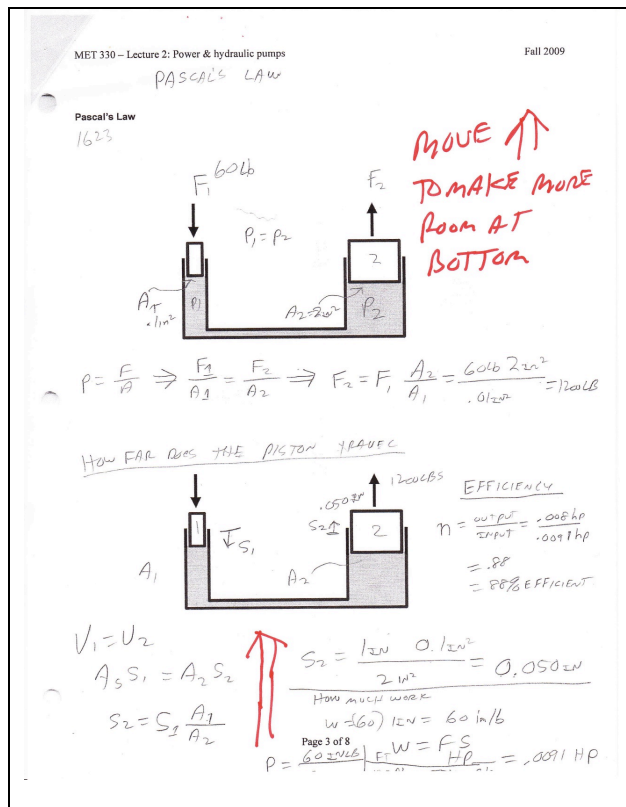 MET 330 – Lecture 2: Power & hydraulic pumps Fall 2009
PASCAL'S LAW
Pascal's Law
1623
MOVE ⇑
TO MAKE MORE
ROOM AT
BOTTOM
F₁ 60lb
F₂
P₁ = P₂
2
A₁
.1in²
P₁
A₂=2in²
P₂
P = F/A ⇒ F1/A1 = F₂/A₂ ⇒ F₂ = F₁ A₂/A₁ = 60lb 2in²/.01in² = 1200LB
HOW FAR DOES THE PISTON TRAVEL
1200LBS
.050in
S₂↑
1
↓S₁
2
A₁
A₂
EFFICIENCY
n = OUTPUT/INPUT = .008hp/.0091hp
= .88
= 88% EFFICIENT
V₁ = V₂
A₅ S₁ = A₂ S₂
S₂ = S₁ A1/A₂
S₂ = 1IN 0.1IN²/2 IN² = 0.050IN
HOW MUCH WORK
W = (60) 1IN = 60 in/lb
Page 3 of 8
W = F S
P = 60 INLB FT HP = .0091 HP